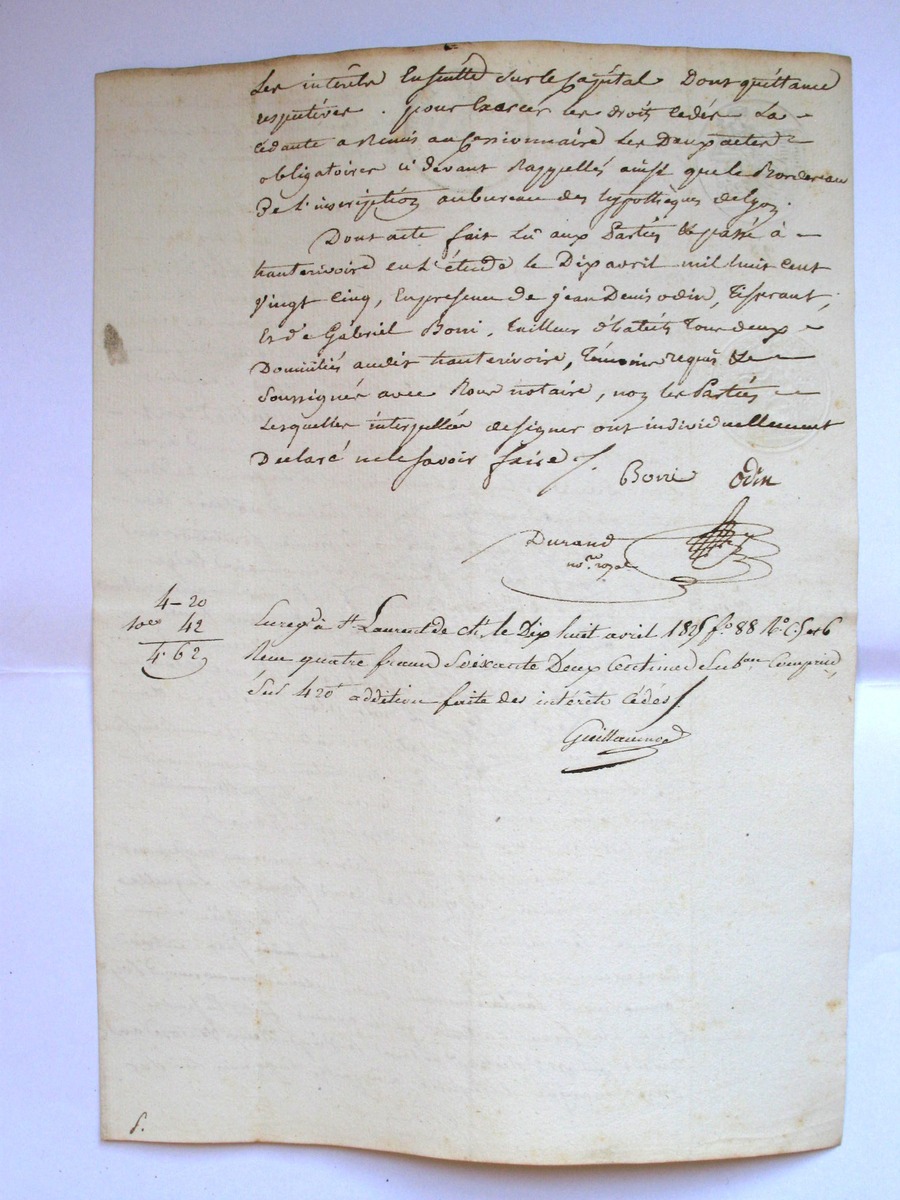 Les intérêts Ensuitte sur le Capital Dont quittance
respectives. pour Exercer les droits Cedés La
cédante a Remis au Cessionnaire Les Deux actes
obligatoires ci devant Rappellés ainsi que le Bordereau
De L'inscription au bureau des hypothèques de Lyon.
Dont acte fait Lû aux Parties & passé à
hauterivoire en L'étude le Dix avril mil huit cent
vingt Cinq, En presence de jean Denis odin, Tisserant,
Et de Gabriel Borri, Tailleur d'habits Tous deux
Domiciliés audit hauterivoire, Témoins requis &
Soussignés avec Nous notaire, non les Parties
Lesquelles interpellées de signer ont individuellement
Declaré ne le savoir faire /.
Borri odin
Durand
no.re royal
4-20
10e 42
4.62
Enreg.é à St Laurent de Ch. le Dix huit avril 1825 f.o 88 R.o C. 5 et 6
Reçu quatre francs Soixante Deux Centimes Subon Compris
Sur 420f addition faite des intérêts Cédés /.
Guillaumod